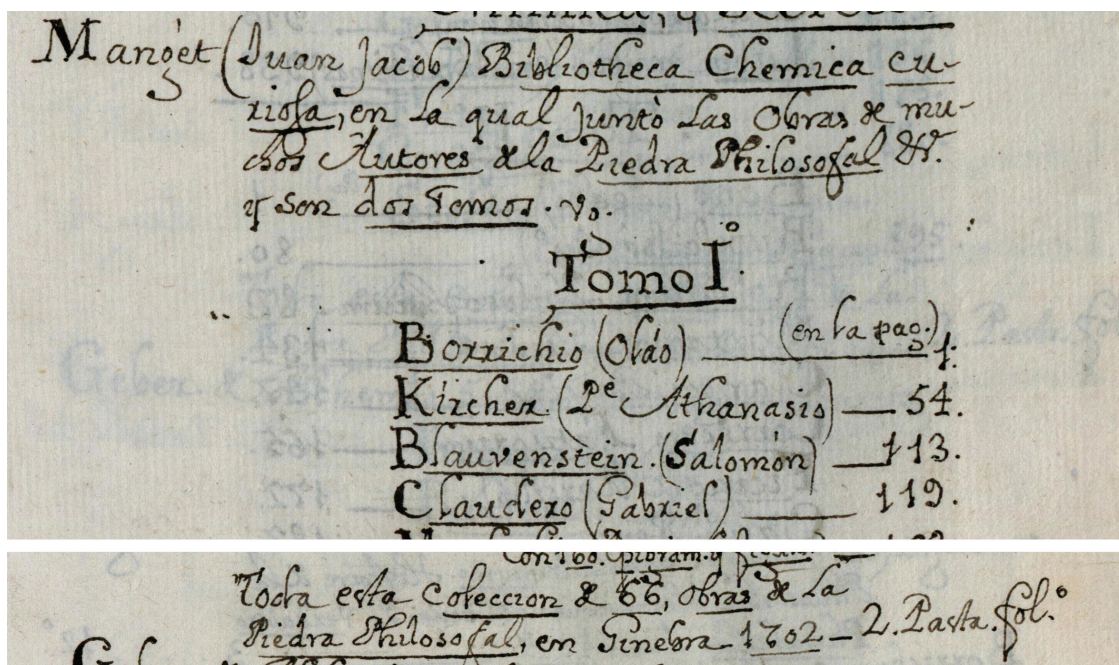 Manget (Juan Jacob) Bibliotheca Chemica cu-
riosa, en la qual juntò las Obras de mu-
chos Autores de la Piedra Philosofal &c.
y son dos Tomos. vs.
Tomo Iº.
Borrichio (Oláo) (en la pag.) 1.
Kircher (Pe Athanasio) 54.
Blauvenstein. (Salomón) 113.
Claudero (Gabriel) 119.
Toda esta Coleccion de 66, obras de la
Piedra Philosofal, en Ginebra 1702 2. Pasta. fol.º